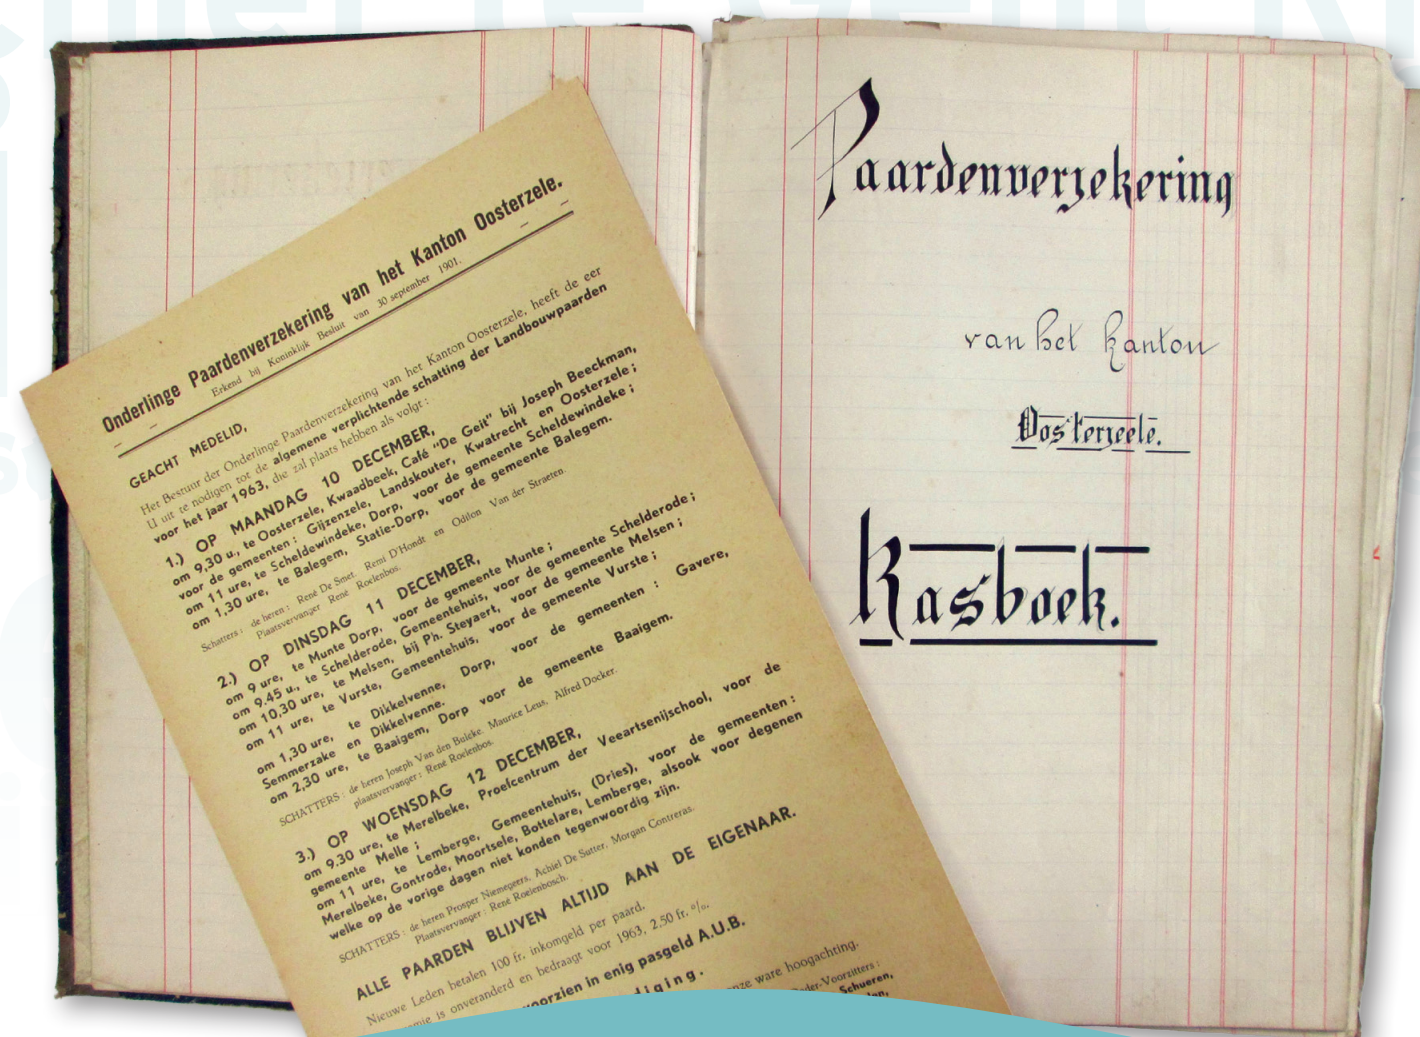 Onderlinge Paardenverzekering van het Kanton Oosterzele.
Erkend bij Koninklijk Besluit van 30 september 1901.
GEACHT MEDELID,
Het Bestuur der Onderlinge Paardenverzekering van het Kanton Oosterzele, heeft de eer
U uit te nodigen tot de algemene verplichtende schatting der Landbouwpaarden
voor het jaar 1963, die zal plaats hebben als volgt :
1.) OP MAANDAG 10 DECEMBER,
om 9,30 u., te Oosterzele, Kwaadbeek, Café "De Geit" bij Joseph Beeckman,
voor de gemeenten : Gijzenzele, Landskouter, Kwatrecht en Oosterzele ;
om 11 ure, te Scheldewindeke, Dorp, voor de gemeente Scheldewindeke ;
om 1,30 ure, te Balegem, Statie-Dorp, voor de gemeente Balegem.
Schatters : de heren : René De Smet, Remi D'Hondt en Odilon Van der Straeten.
Plaatsvervanger René Roelenbos.
2.) OP DINSDAG 11 DECEMBER,
om 9 ure, te Munte Dorp, voor de gemeente Munte ;
om 9.45 u., te Schelderode, Gemeentehuis, voor de gemeente Schelderode ;
om 10,30 ure, te Melsen, bij Ph. Steyaert, voor de gemeente Melsen ;
om 11 ure, te Vurste, Gemeentehuis, voor de gemeente Vurste ;
om 1,30 ure, te Dikkelvenne, Dorp, voor de gemeenten : Gavere,
Semmerzake en Dikkelvenne.
om 2,30 ure, te Baaigem, Dorp voor de gemeente Baaigem.
SCHATTERS : de heren Joseph Van den Bulcke, Maurice Leus, Alfred Docker.
plaatsvervanger : René Roelenbos.
3.) OP WOENSDAG 12 DECEMBER,
om 9.30 ure, te Merelbeke, Proefcentrum der Veeartsenijschool, voor de
gemeente Melle ;
om 11 ure, te Lemberge, Gemeentehuis, (Dries), voor de gemeenten :
Merelbeke, Gontrode, Moortsele, Bottelare, Lemberge, alsook voor degenen
welke op de vorige dagen niet konden tegenwoordig zijn.
SCHATTERS : de heren Prosper Niemegeers, Achiel De Sutter, Morgan Contreras.
Plaatsvervanger : René Roelenbosch.
ALLE PAARDEN BLIJVEN ALTIJD AAN DE EIGENAAR.
Nieuwe Leden betalen 100 fr. inkomgeld per paard.
mie is onveranderd en bedraagt voor 1963, 2.50 fr. %.
voorzien in enig pasgeld A.U.B.
diging.
onze ware hoogachting.
der-Voorzitters :
Schueren,
Paardenverzekering
van het Kanton
Oosterzeele.
Kasboek.